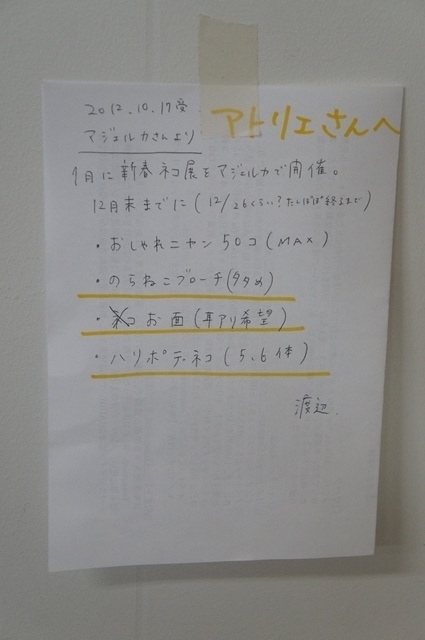 2012.10.17受
マジェルカさんより
アトリエさんへ
1月に新春ネコ展をマジェルカで開催。
12月末までに(12/26くらい?たんぽぽ終るまで)
・おしゃれニャン50コ(MAX)
・のらねこブローチ(タタめ)
・ネコお面(耳アリ希望)
・ハリポテネコ(5、6体)
渡辺.